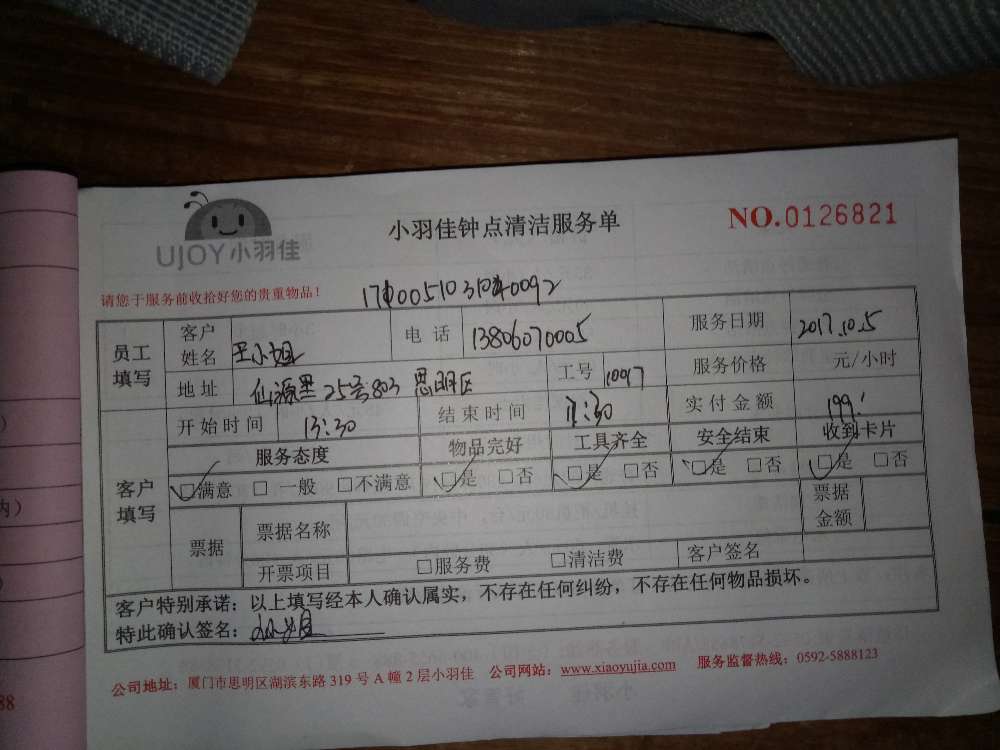 UJOY小羽佳
小羽佳钟点清洁服务单
NO.0126821
请您于服务前收拾好您的贵重物品！
员工填写 客户姓名 王小姐 电话 13806070005 服务日期 2017.10.5
地址 仙源里25号803 思明区 工号 10097 服务价格 元/小时
客户填写 开始时间 13:30 结束时间 17:30 实付金额 199.
服务态度 物品完好 工具齐全 安全结束 收到卡片
□满意 □一般 □不满意 □是 □否 □是 □否 □是 □否 □是 □否
票据 票据名称 票据金额
开票项目 □服务费 □清洁费 客户签名
客户特别承诺：以上填写经本人确认属实，不存在任何纠纷，不存在任何物品损坏。
特此确认签名：
公司地址：厦门市思明区湖滨东路319号A幢2层小羽佳 公司网站：www.xiaoyujia.com 服务监督热线：0592-5888123